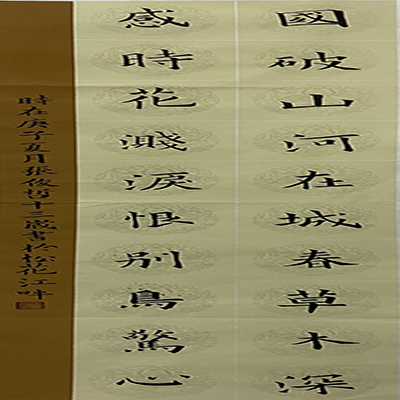 國破山河在城春草木深
感時花濺淚恨別鳥驚心
時在庚子夏月張俊哲十三歲書於松花江畔